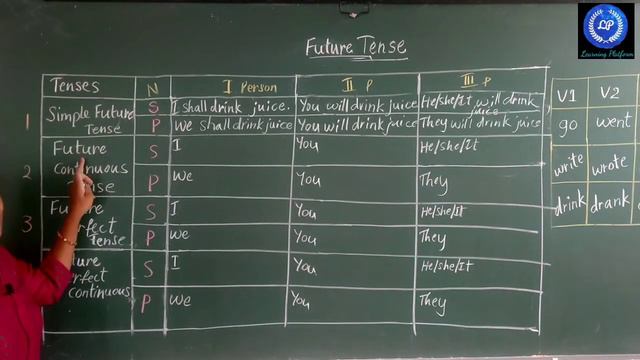 LP
Learning Platform
Future Tense
Tenses N I Person II P III P
1 Simple Future Tense S I shall drink juice. You will drink juice He/she/It will drink juice
P We shall drink juice You will drink juice They will drink juice
2 Future Continuous S I You He/she/It
P We You They
3 Future Tense S I You He/she/It
P We You They
S I You He/she/It
continuous P We You They
V1 V2
go went
write wrote
drink drank